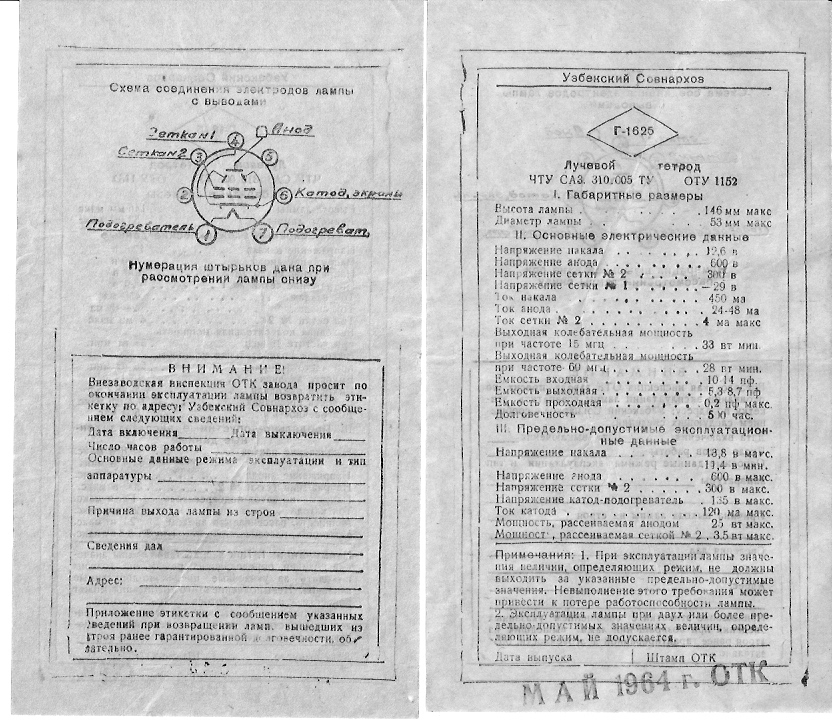 Схема соединения электродов лампы
с выводами
Сетка№1
4
Анод
Сетка№2
3
5
2
6
Катод, экраны
Подогреватель
1
7
Подогреват.
Нумерация штырьков дана при
рассмотрении лампы снизу
ВНИМАНИЕ!
Внезаводская инспекция ОТК завода просит по
окончании эксплуатации лампы возвратить эти-
кетку по адресу: Узбекский Совнархоз с сообще-
нием следующих сведений:
Дата включения Дата выключения
Число часов работы
Основные данные режима эксплуатации и тип
аппаратуры
Причина выхода лампы из строя
Сведения дал
Адрес:
Приложение этикетки с сообщением указанных
сведений при возвращении ламп, вышедших из
строя ранее гарантированной долговечности, об
зательно.
Узбекский Совнархоз
Г-1625
Лучевой тетрод
ЧТУ САЗ. 310.005 ТУ ОТУ 1152
I. Габаритные размеры
Высота лампы . . . . . . . . . 146 мм макс
Диаметр лампы . . . . . . . . 53 мм макс
II. Основные электрические данные
Напряжение накала . . . . . . 12,6 в
Напряжение анода . . . . . . 600 в
Напряжение сетки № 2 . . . . . 300 в
Напряжение сетки № 1 . . . . . —29 в
Ток накала . . . . . . . . 450 ма
Ток анода . . . . . . . . 24-48 ма
Ток сетки № 2 . . . . . . . . 4 ма макс
Выходная колебательная мощность
при частоте 15 мгц . . . . . . 33 вт мин.
Выходная колебательная мощность
при частоте 60 мгц . . . . . . 28 вт мин.
Емкость входная . . . . . . . 10-14 пф.
Емкость выходная . . . . . . . 5,3-8,7 пф
Емкость проходная . . . . . . 0,2 пф макс.
Долговечность . . . . . . . 500 час.
III. Предельно-допустимые эксплуатацион-
ные данные
Напряжение накала . . . . . . 13,8 в макс.
11,4 в мин.
Напряжение анода . . . . . . 600 в макс.
Напряжение сетки № 2 . . . . . 300 в макс.
Напряжение катод-подогреватель . 135 в макс.
Ток катода . . . . . . . . 120 ма макс.
Мощность, рассеиваемая анодом 25 вт макс.
Мощность, рассеиваемая сеткой № 2 . 3,5 вт макс.
Примечания: 1. При эксплуатации лампы значе-
ния величин, определяющих режим, не должны
выходить за указанные предельно-допустимые
значения. Невыполнение этого требования может
привести к потере работоспособности лампы.
2. Эксплуатация лампы при двух или более пре-
дельно-допустимых значениях величин, опреде-
ляющих режим, не допускается.
Дата выпуска Штамп ОТК
МАЙ 1964 г. ОТК